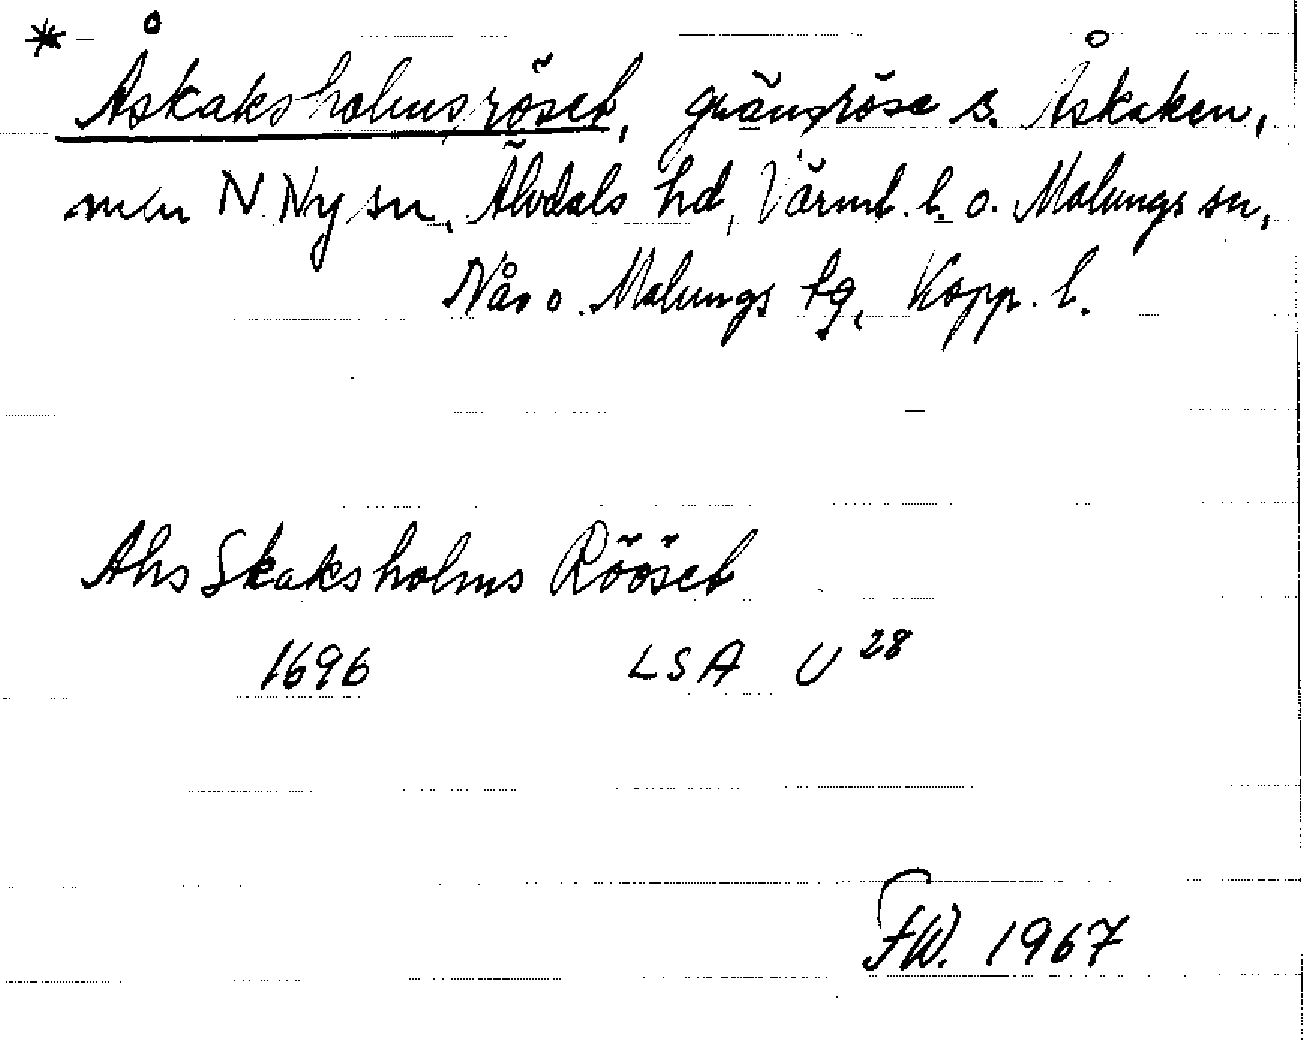 * Åskaksholmsröset, gränsröse s. Åskaken,
m/n N. Ny sn, Älvdals hd, Värml. l. o. Malungs sn,
Nås o. Malungs tg, Kopp. l.
Ahs Skaksholms Rööset
1696 LSA U 28
FW. 1967